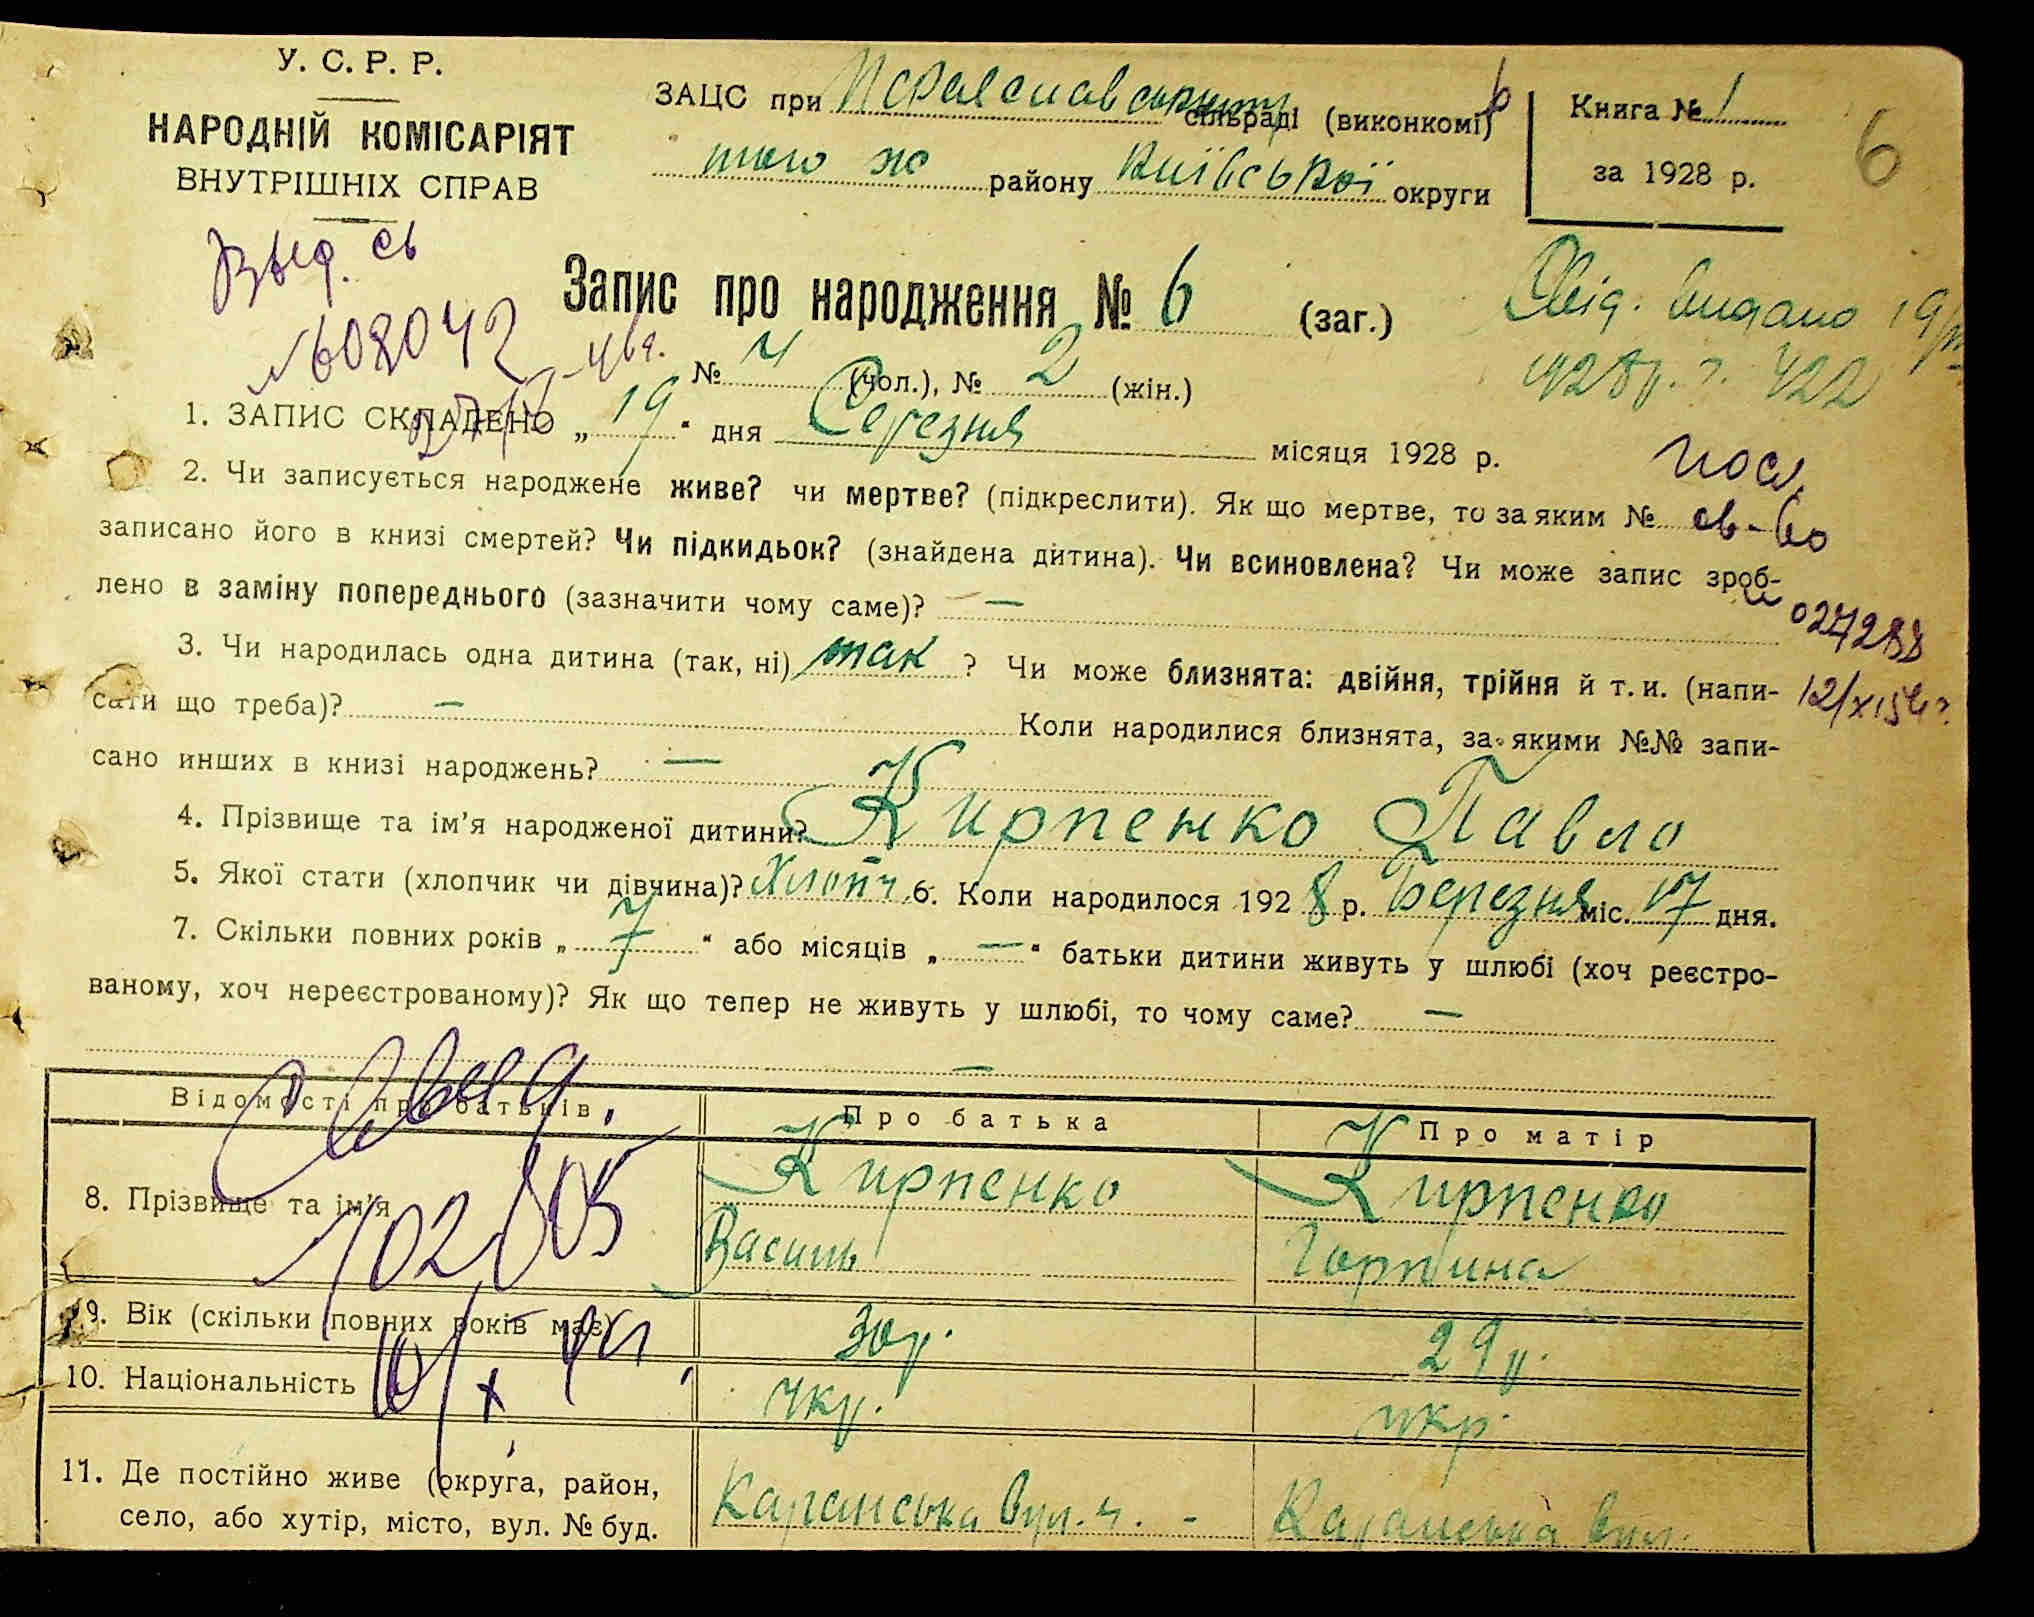 У. С. Р. Р.
НАРОДНІЙ КОМІСАРІЯТ
ВНУТРІШНІХ СПРАВ
ЗАЦС при сільраді (виконкомі)
того ж району Київської округи
Книга № 1
за 1928 р.
6
Выд. св
№ 608042
Запис про народження № 6 (заг.)
Свід. видано 19/
1928 р. 422
№ 4 (чол.), № 2 (жін.)
1. ЗАПИС СКЛАДЕНО „ 19 “ дня Березня місяця 1928 р.
2. Чи записується народжене живе? чи мертве? (підкреслити). Як що мертве, то за яким №
записано його в книзі смертей? Чи підкидьок? (знайдена дитина). Чи всиновлена? Чи може запис зроб-
лено в заміну попереднього (зазначити чому саме)? —
св-во
027288
3. Чи народилась одна дитина (так, ні) так ? Чи може близнята: двійня, трійня й т. и. (напи-
сати що треба)? — Коли народилися близнята, за якими №№ запи-
сано инших в книзі народжень? —
12/XI 54 г.
4. Прізвище та ім'я народженої дитини? Кирпенко Павло
5. Якої стати (хлопчик чи дівчина)? Хлопч. 6. Коли народилося 1928 р. Березня міс. 17 дня.
7. Скільки повних років „ 7 “ або місяців „ — “ батьки дитини живуть у шлюбі (хоч реєстро-
ваному, хоч нереєстрованому)? Як що тепер не живуть у шлюбі, то чому саме? —
—
Відомості про батьків Про батька Про матір
8. Прізвище та ім'я Кирпенко Кирпенко
Василь Горпина
9. Вік (скільки повних років має) 30 р. 29 р.
10. Національність укр. укр.
11. Де постійно живе (округа, район,
село, або хутір, місто, вул. № буд. Каранська вул. 4. - Каранська вул.